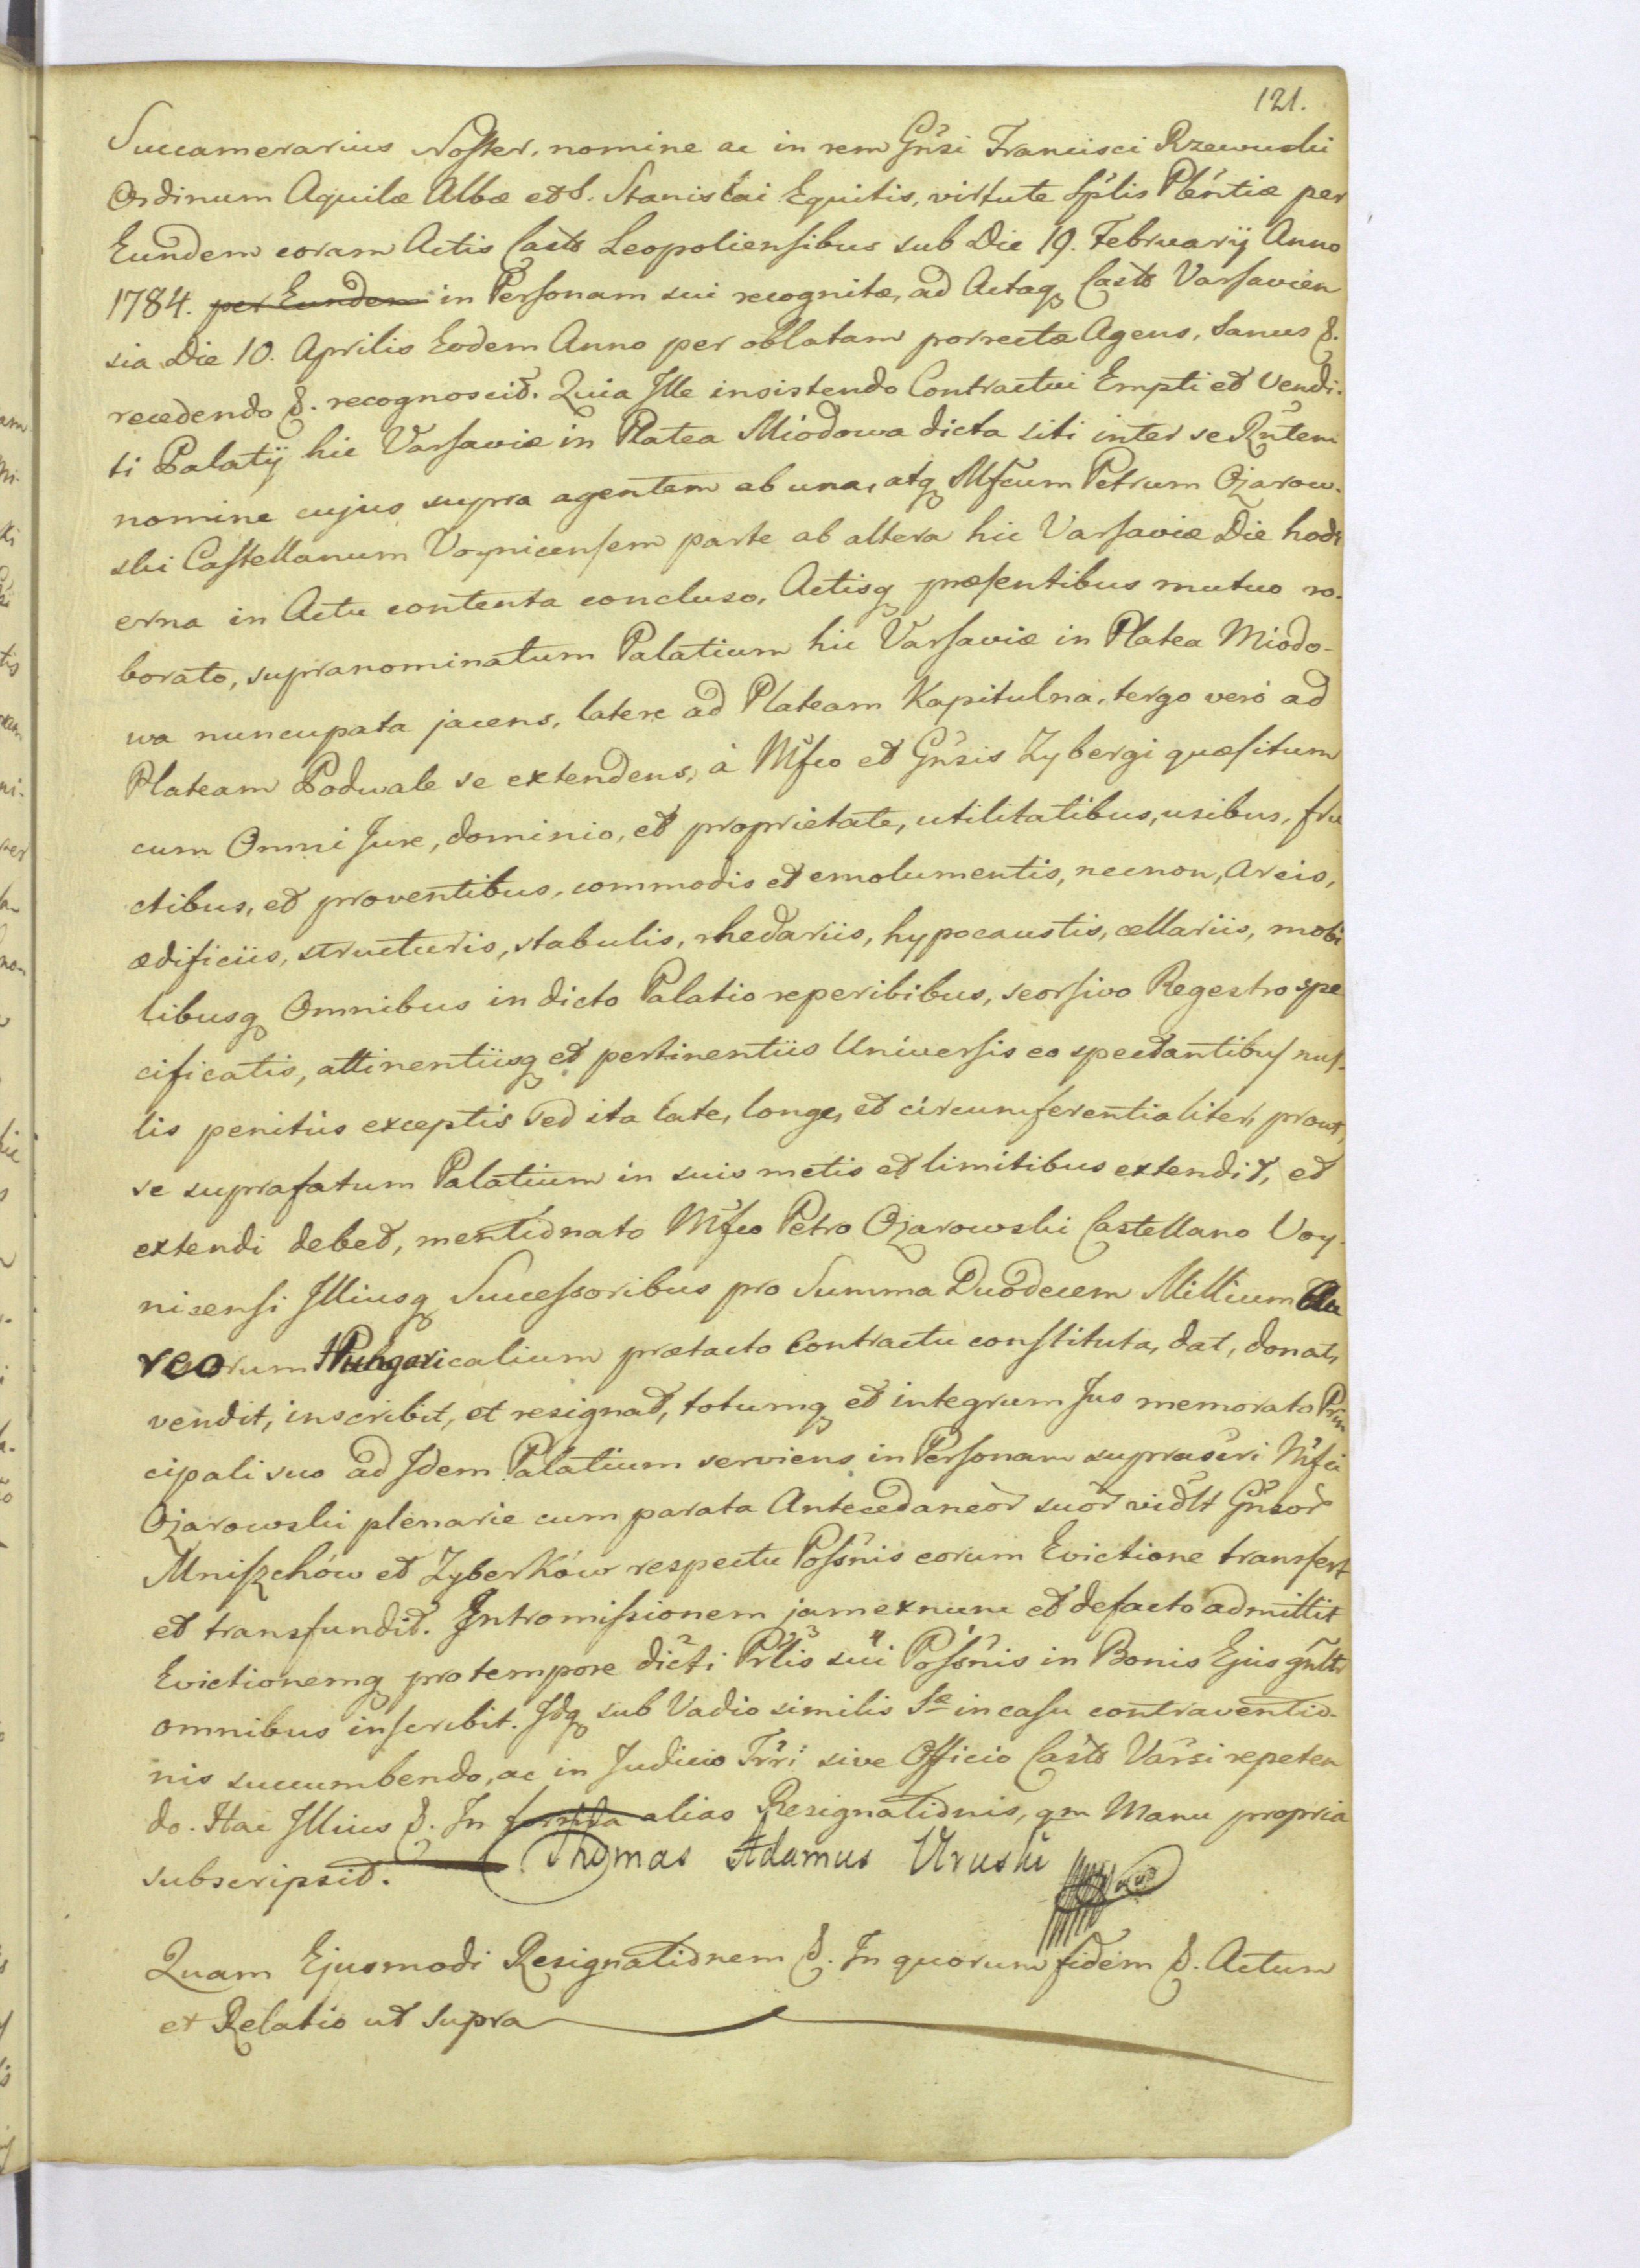 121.
Succamerarius Noster, nomine ac in rem Gnsi Francisci Rzewuski
Ordinum Aquilæ Albæ et S. Stanislai Equitis, virtute Splis Plentiæ per
Eundem coram Actis Castr Leopoliensibus sub Die 19. Februarij Anno
1784. per Eundem in Personam sui recognitæ, ad Actaq Castr Varsavien
sia Die 10. Aprilis Eodem Anno per oblatam porrectæ Agens, Sanus &.
recedendo &. recognoscit. Quia Ille insistendo Contractui Empti et Vendi-
ti Palatij hic Varsaviæ in Platea Miodowa dicta siti inter se Rntem
nomine cujus supra agentem ab una, atq Mfcum Petrum Ożarow-
ski Castellanum Voynicensem parte ab altera hic Varsaviæ Die hodi
erna in Actu contenta concluso, Actisq præsentibus mutuo ro-
borato, supranominatum Palatium hic Varsaviæ in Platea Miodo-
wa nuncupata jacens, latere ad Plateam Kapitulna, tergo verò ad
Plateam Podwale se extendens, à Mfco et Gnsis Zybergi quæsitum
cum Omni Jure, dominio, et proprietate, utilitatibus, usibus, fru
ctibus, et proventibus, commodis et emolumentis, necnon, areis,
ædificiis, structuris, stabulis, rhedariis, hypocaustis, cellariis, mobi
libusq Omnibus in dicto Palatio reperibibus, seorsivo Regestro spe
cificatis, attinentiisq et pertinentiis Universis eo spectantibus nul-
lis penitùs exceptis sed ita late, longe, et circumferentialiter, prout,
se suprafatum Palatium in suis metis et limitibus extendit, et
extendi debet, mentionato Mfco Petro Ożarowski Castellano Voy-
nicensi Illiusq Successoribus pro Summa Duodecem Millium Au
reorum Hungaricalium prætacto Contractu constituta, dat, donat,
vendit, inscribit, et resignat, totumq et integrum Jus memorato Prin
cipali suo ad Idem Palatium serviens in Personam suprascri Mfci
Ożarowski plenarie cum parata Antecedaneor suor vidlt Gnsor
Mniszchów et Zyberków respectu Possnis eorum Evictione transfert
et transfundit. Intromissionem jam exnunc et defacto admittit
Evictionemq pro tempore dicti Prlis sui Possnis in Bonis Ejus gnltr
omnibus inscribit. Idq sub Vadio similis Sæ in casu contraventio-
nis succumbendo, ac in Judicio Trri sive Officio Castr Varsi repeten
do. Hac Illius &. In forma alias Resignationis, qm Manu propria
subscripsit. Thomas Adamus Uruski
Quam Ejusmodi Resignationem &. In quorum fidem &. Actum
et Relatio ut supra